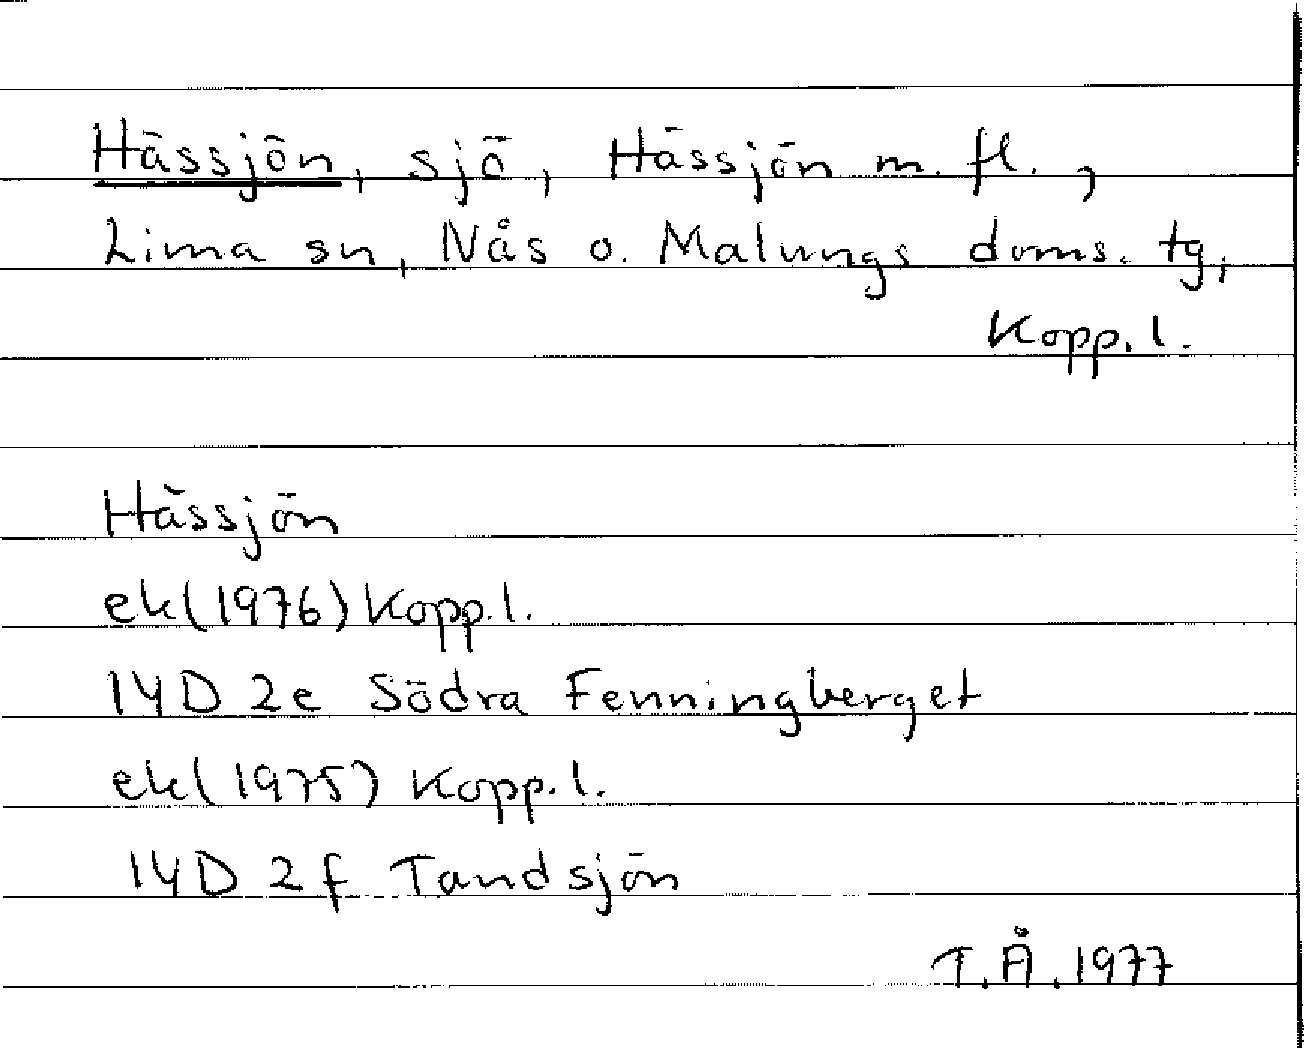 Hässjön, sjö, Hässjön m. fl.,
Lima sn, Nås o. Malungs doms. tg,
Kopp. l.
Hässjön
ek (1976) Kopp. l.
14D 2e Södra Fenningberget
ek (1975) Kopp. l.
14D 2f Tandsjön
T.Å. 1977